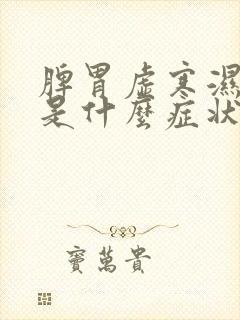 脾胃虛寒濕
是什麼症狀
竇萬貴